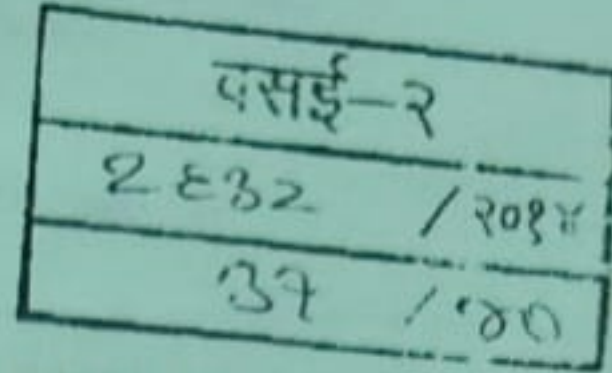 वसई-२
२६३२ / २०१४
३१ / ४०